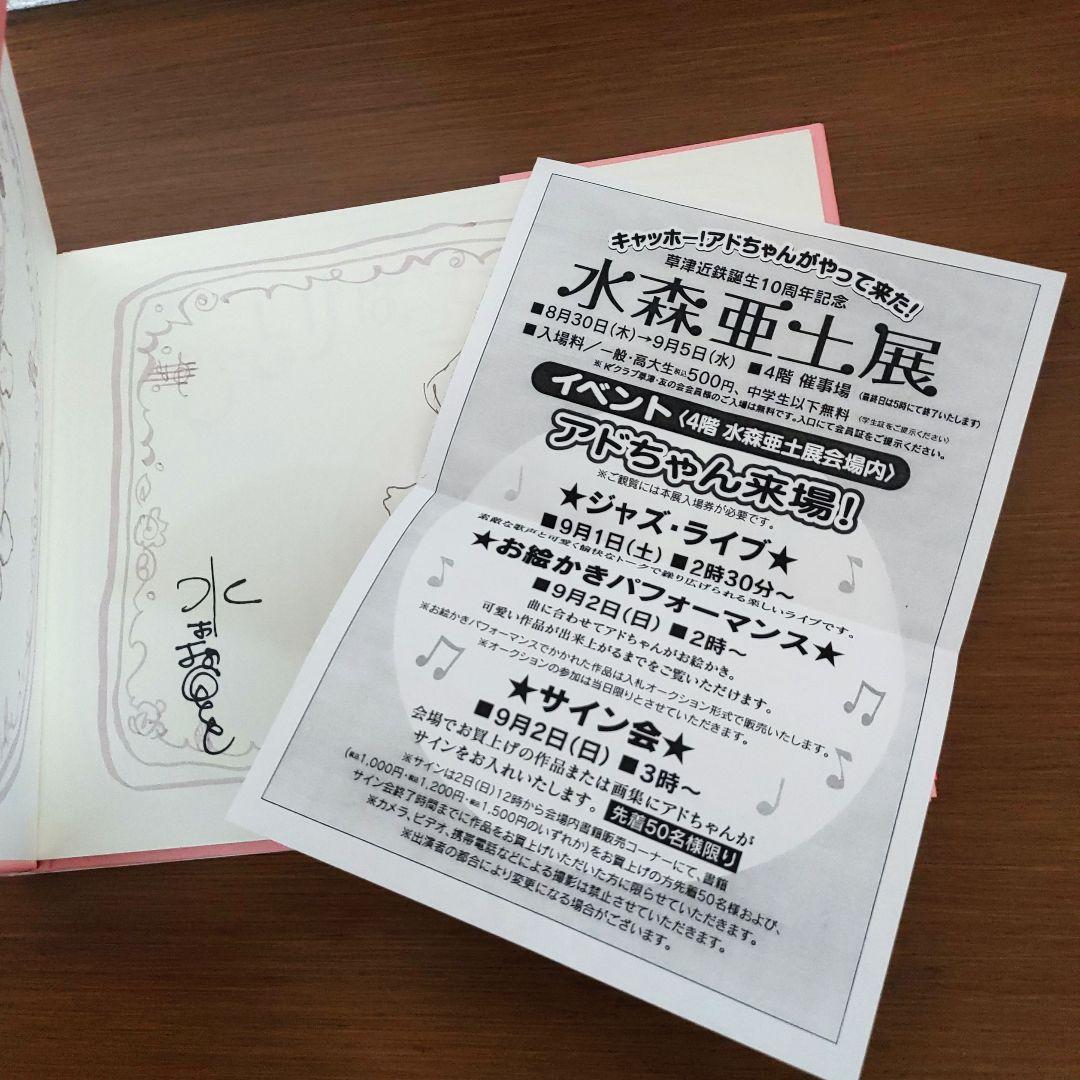 キャッホー!アドちゃんがやって来た!
草津近鉄誕生10周年記念
水森亜土展
■8月30日(木)→9月5日(水) ■4階 催事場 (最終日は5時にて終了いたします)
■入場料/一般・高大生税込500円、中学生以下無料 (学生証をご提示ください)
※Kクラブ草津・友の会会員様のご入場は無料です。入口にて会員証をご提示ください。
イベント〈4階 水森亜土展会場内〉
アドちゃん来場!
※ご観覧には本展入場券が必要です。
★ジャズ・ライブ★
■9月1日(土) ■2時30分〜
素敵な歌声と可愛く愉快なトークで繰り広げられる楽しいライブです。
★お絵かきパフォーマンス★
■9月2日(日) ■2時〜
曲に合わせてアドちゃんがお絵かき。
可愛い作品が出来上がるまでをご覧いただけます。
※お絵かきパフォーマンスでかかれた作品は入札オークション形式で販売いたします。
※オークションの参加は当日限りとさせていただきます。
★サイン会★
■9月2日(日) ■3時〜
会場でお買上げの作品または画集にアドちゃんが
サインをお入れいたします。 先着50名様限り
※サインは2日(日)12時から会場内書籍販売コーナーにて、書籍
(税込1,000円・税込1,200円・税込1,500円のいずれか)をお買上げの方先着50名様および、
サイン会終了時間までに作品をお買上げいただいた方に限らせていただきます。
※カメラ、ビデオ、携帯電話などによる撮影は禁止させていただきます。
※出演者の都合により変更になる場合がございます。